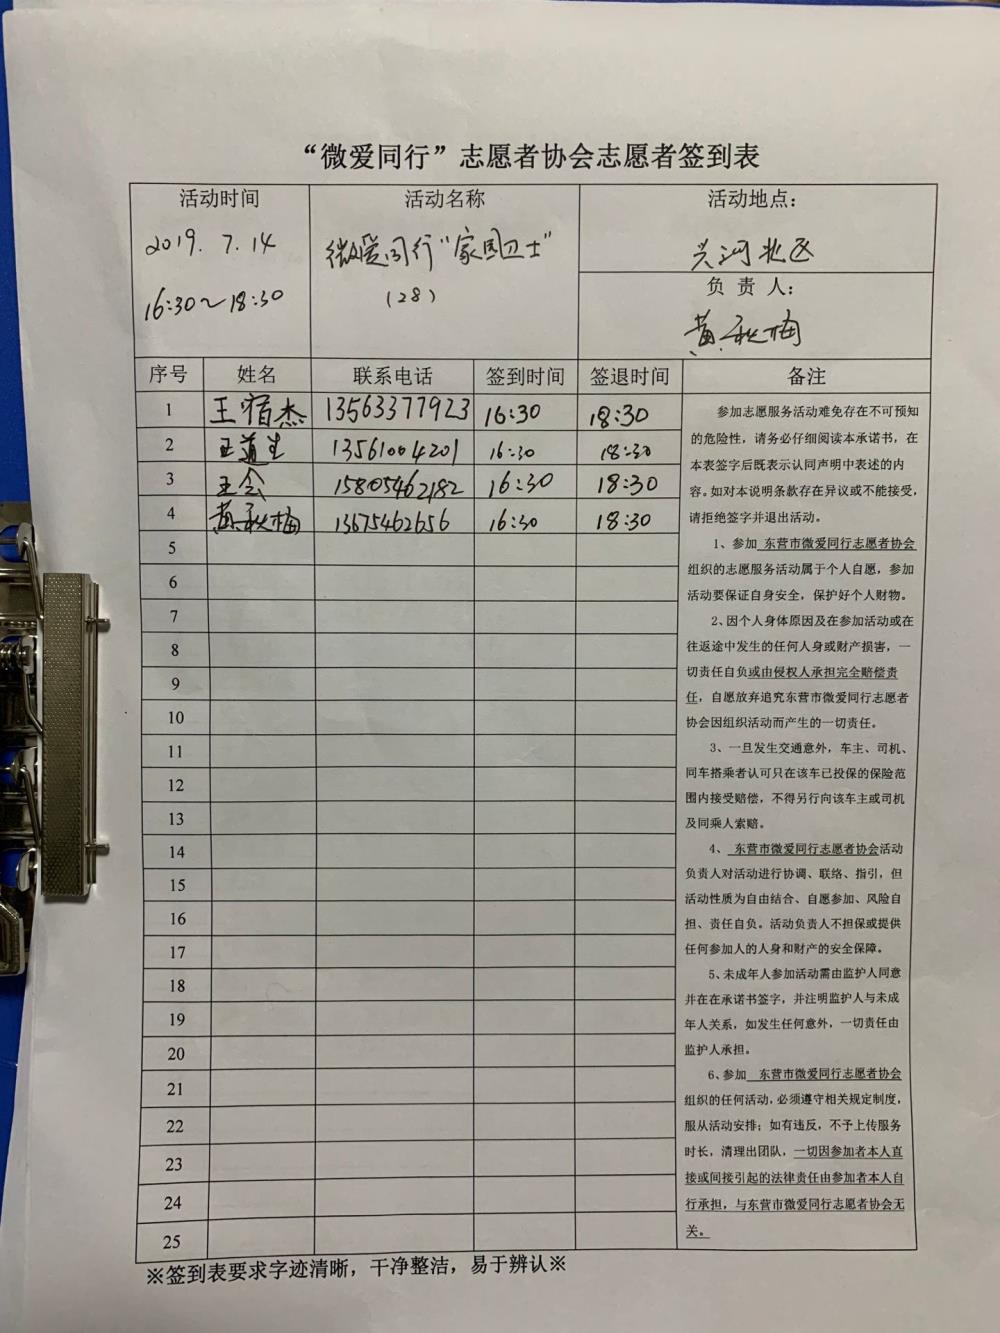 “微爱同行”志愿者协会志愿者签到表
活动时间
2019. 7. 14
16:30～18:30
活动名称
微爱同行“家园卫士”
(28)
活动地点：
兴河北区
负 责 人：
黄秋梅
序号 姓名 联系电话 签到时间 签退时间 备注
1 王宿杰 13563377923 16:30 18:30
2 王道生 13561004201 16:30 18:30
3 王会 15805462182 16:30 18:30
4 黄秋梅 13675462656 16:30 18:30
5
6
7
8
9
10
11
12
13
14
15
16
17
18
19
20
21
22
23
24
25
参加志愿服务活动难免存在不可预知
的危险性，请务必仔细阅读本承诺书，在
本表签字后既表示认同声明中表述的内
容。如对本说明条款存在异议或不能接受，
请拒绝签字并退出活动。
1、参加 东营市微爱同行志愿者协会
组织的志愿服务活动属于个人自愿，参加
活动要保证自身安全，保护好个人财物。
2、因个人身体原因及在参加活动或在
往返途中发生的任何人身或财产损害，一
切责任自负或由侵权人承担完全赔偿责
任，自愿放弃追究东营市微爱同行志愿者
协会因组织活动而产生的一切责任。
3、一旦发生交通意外，车主、司机、
同车搭乘者认可只在该车已投保的保险范
围内接受赔偿，不得另行向该车主或司机
及同乘人索赔。
4、 东营市微爱同行志愿者协会活动
负责人对活动进行协调、联络、指引，但
活动性质为自由结合、自愿参加、风险自
担、责任自负。活动负责人不担保或提供
任何参加人的人身和财产的安全保障。
5、未成年人参加活动需由监护人同意
并在在承诺书签字，并注明监护人与未成
年人关系，如发生任何意外，一切责任由
监护人承担。
6、参加 东营市微爱同行志愿者协会
组织的任何活动，必须遵守相关规定制度，
服从活动安排；如有违反，不予上传服务
时长，清理出团队，一切因参加者本人直
接或间接引起的法律责任由参加者本人自
行承担，与东营市微爱同行志愿者协会无
关。
※签到表要求字迹清晰，干净整洁，易于辨认※